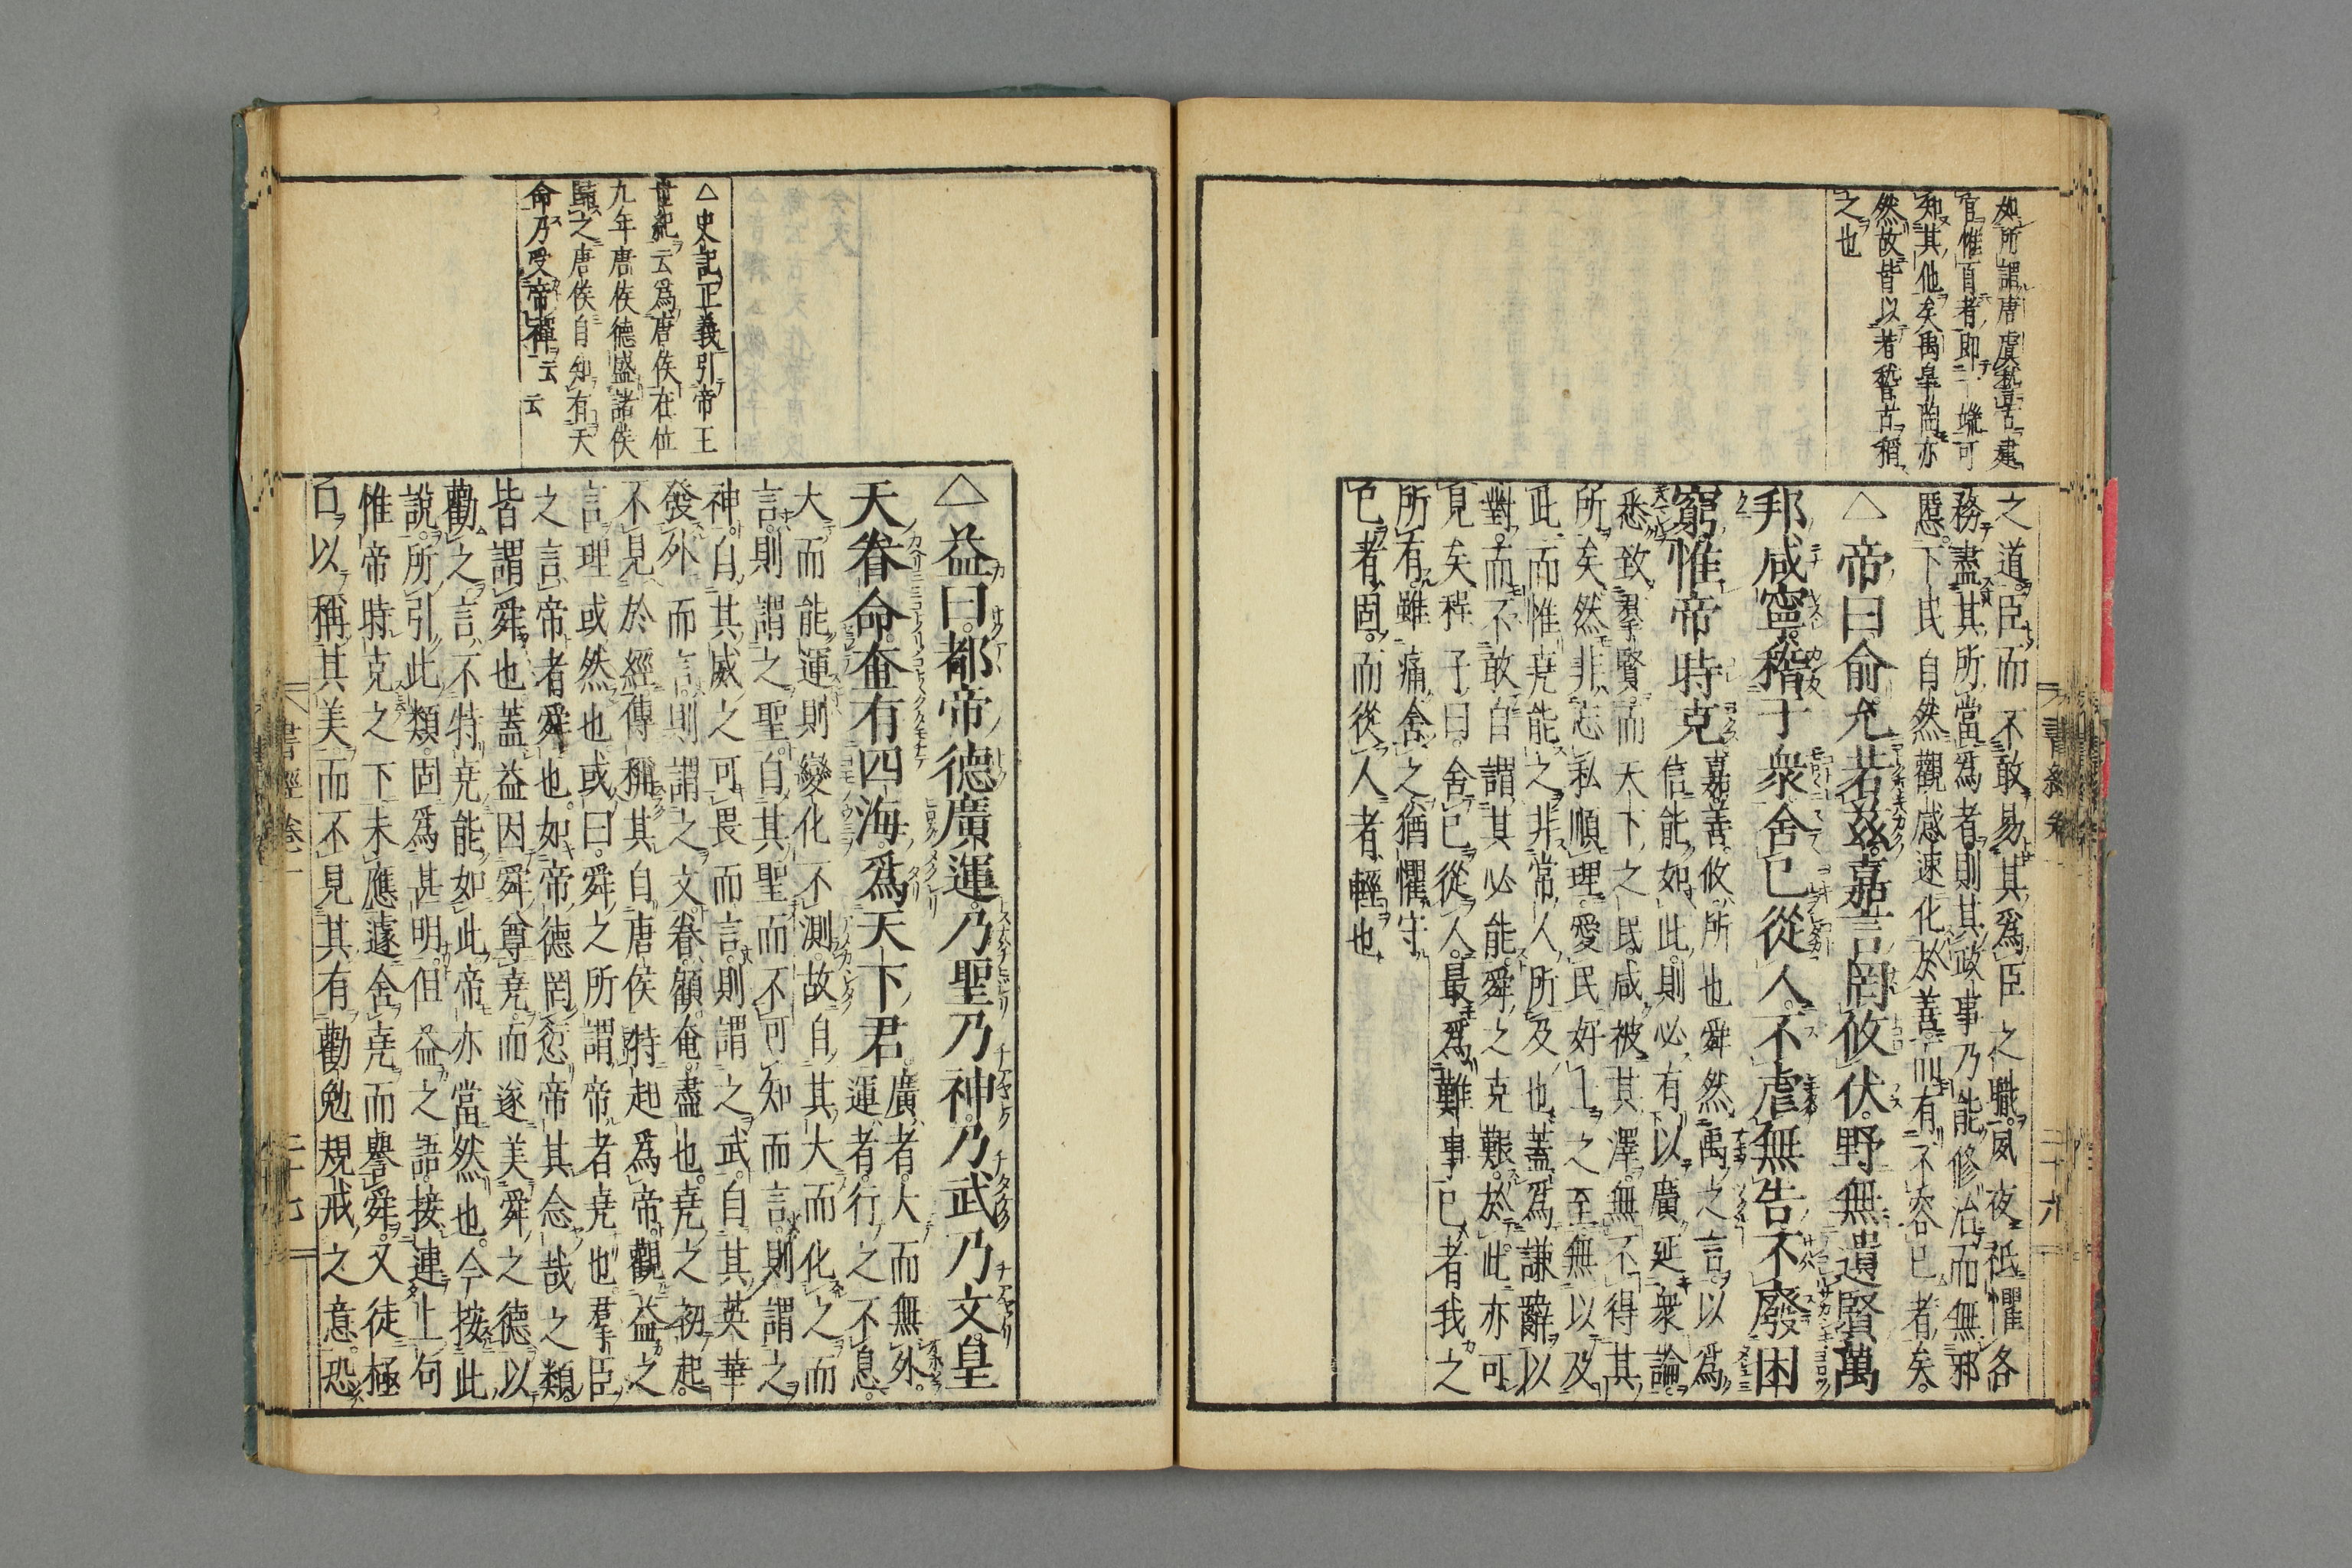 如所謂唐虞稽古建
官惟百者卽一端可
知其他矣禹臯陶亦
然故皆以若稽古稱
之也
之道臣而不敢易其爲臣之職夙夜祗懼各
務盡其所當爲者則其政事乃能修治而無邪
慝下民自然觀感速化於善而有不容已者矣
△帝曰兪允若玆嘉言罔攸伏野無遺賢萬
邦咸寧稽于衆舍已從人不虐無告不廢困
窮惟帝時克
嘉善攸所也舜然禹之言以爲
信能如此則必有以廣延衆論
悉致羣賢而天下之民咸被其澤無不得其
所矣然非忘私順理愛民好士之至無以及
此而惟堯能之非常人所及也蓋爲謙辭以
對而不敢自謂其必能舜之克艱於此亦可
見矣程子曰舍已從人最爲難事已者我之
所有雖痛舍之猶懼守
已者固而從人者輕也
二十六
△史記正義引帝王
世紀云爲唐侯在位
九年唐侯德盛諸侯
歸之唐侯自知有天
命乃受帝禪云云
△益曰都帝德廣運乃聖乃神乃武乃文皇
天眷命奄有四海爲天下君
廣者大而無外
運者行之不息
大而能運則變化不測故自其大而化之而
言則謂之聖自其聖而不可知而言則謂之
神自其威之可畏而言則謂之武自其英華
發外而言則謂之文眷顧奄盡也堯之初起
不見於經傳稱其自唐侯特起爲帝觀益之
言理或然也或曰舜之所謂帝者堯也羣臣
之言帝者舜也如帝德罔愆帝其念哉之類
皆謂舜也蓋益因舜尊堯而遂美舜之德以
勸之言不特堯能如此帝亦當然也今按此
說所引此類固爲甚明但益之語接連上句
惟帝時克之下未應遽舍堯而譽舜又徒極
口以稱其美而不見其有勸勉規戒之意恐
書經卷一
二十七